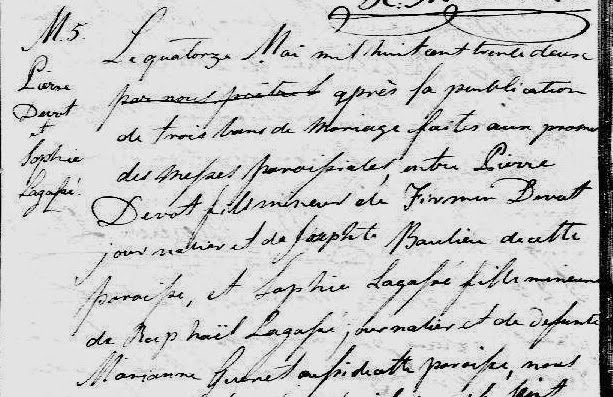 M. 5.
Pierre
Devot
et
Sophie
Lagassé.
Le quatorze Mai mil huit cent trente deux
par nous prêtre après la publication
de trois bans de mariage faites aux prones
des Messes paroissiales, entre Pierre
Devot fils mineur de Firmin Devot
journalier et de Josephte Baulieu de cette
paroisse, et Sophie Lagassé fille mineure
de Raphaël Lagassé, journalier et de defunte
Marianne Guenet aussi de cette paroisse, nous